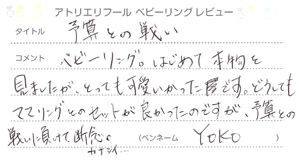 アトリエリフール ベビーリング レビュー
タイトル 予算との戦い
コメント ベビーリング。はじめて本物を
見ましたが、とっても可愛いかった屋です。どうしても
ママリングとのセットが良かったのですが、予算との
戦いに負けて断念。
カナシイ…
(ペンネーム YOKO )